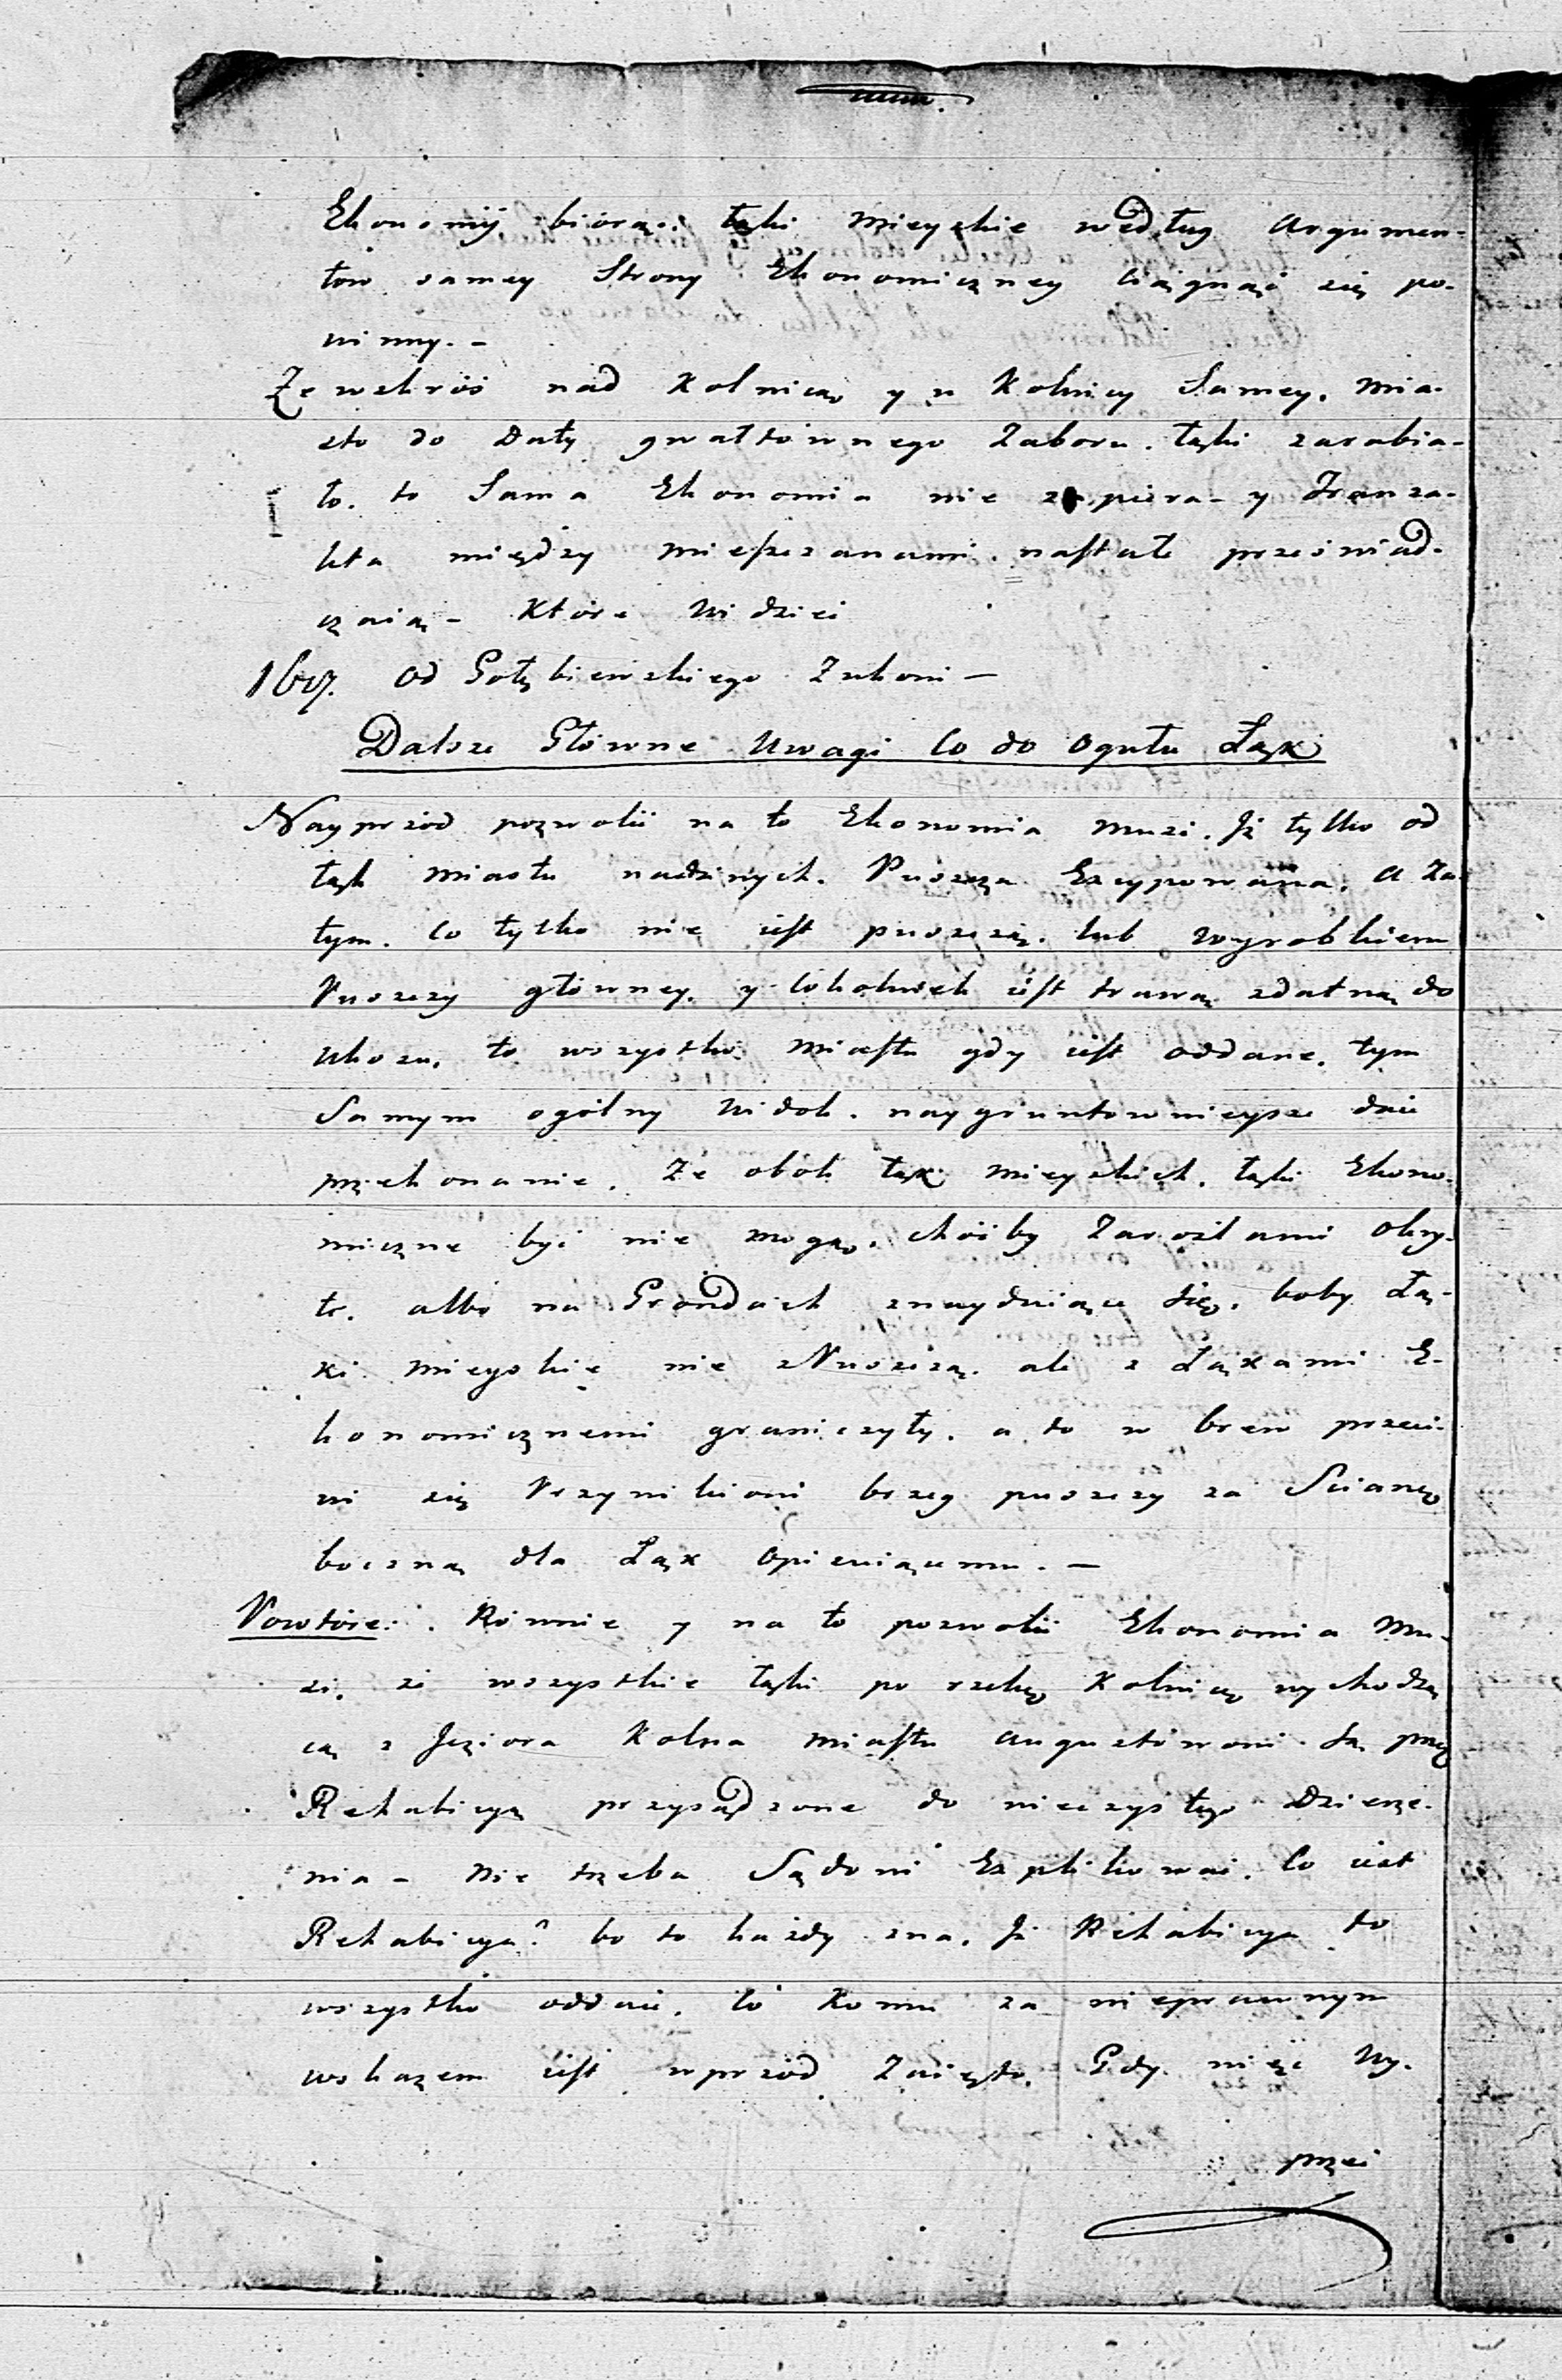 Ekonomij biorąc. łąki Mieyskie według Argumen-
tow samey Strony Ekonomiczney Ciągnąć się po-
winny. -
Że wskroś nad Kolnicą y u Kolnicy Samey. Mia-
sto do Daty gwałtownego Zaboru. łąki zarabia-
ło. to Sama Ekonomia nie zapiera - y Tranza-
kta między Mieszczanami. nastałe przeświad-
czaią - Które Widzieć
od Gołębiewskiego Zukowi -
Dalsze Główne Uwagi Co do Ogułu Łąk
Nayprzód pozwolić na to Ekonomia Musi. Iż tylko od
łąk Miastu nadanych. Puszcza Excypowana. a Za-
tym. Co tylko nie iest puszczą. lub Wyrobkiem
Puszczy główney. y Cokolwiek iest trawą zdatną do
Ukosu. to wszystko Miastu gdy iest oddane. tym
Samym ogólny Widok. naygruntownieysze daie
przekonanie. Że obok łąk Mieyskich. łąki Ekono-
miczne być nie mogą. choćby Zaroślami Okry-
te. albo na Grondach znayduiące się. boby Łą-
ki Mieyskie nie z Puszczą. ale z Łąkami E-
konomicznemi graniczyły. a to w brew przeci-
wi się Przywileiowi brzeg puszczy za Scianę
boczną dla Łąk Opiewiaiącemu. -
Powtóre: Równie y na to pozwolić Ekonomia Mu-
si. że wszystkie łąki po rzekę Kolnicę wychodzą-
cą z Jeziora Kolna Miastu Augustówowi. Są przez
Rehabicyą przysądzone do wieczystego Dzierże-
nia - Nie trzeba Sądowi Explikować. Co iest
Rehabicya? bo to każdy zna. Iż Rehabicya to
wszystko oddaie. Co Komu za nieprawnym
wskazem iest wprzód Zaięto. Gdy więc Wy-
przeć